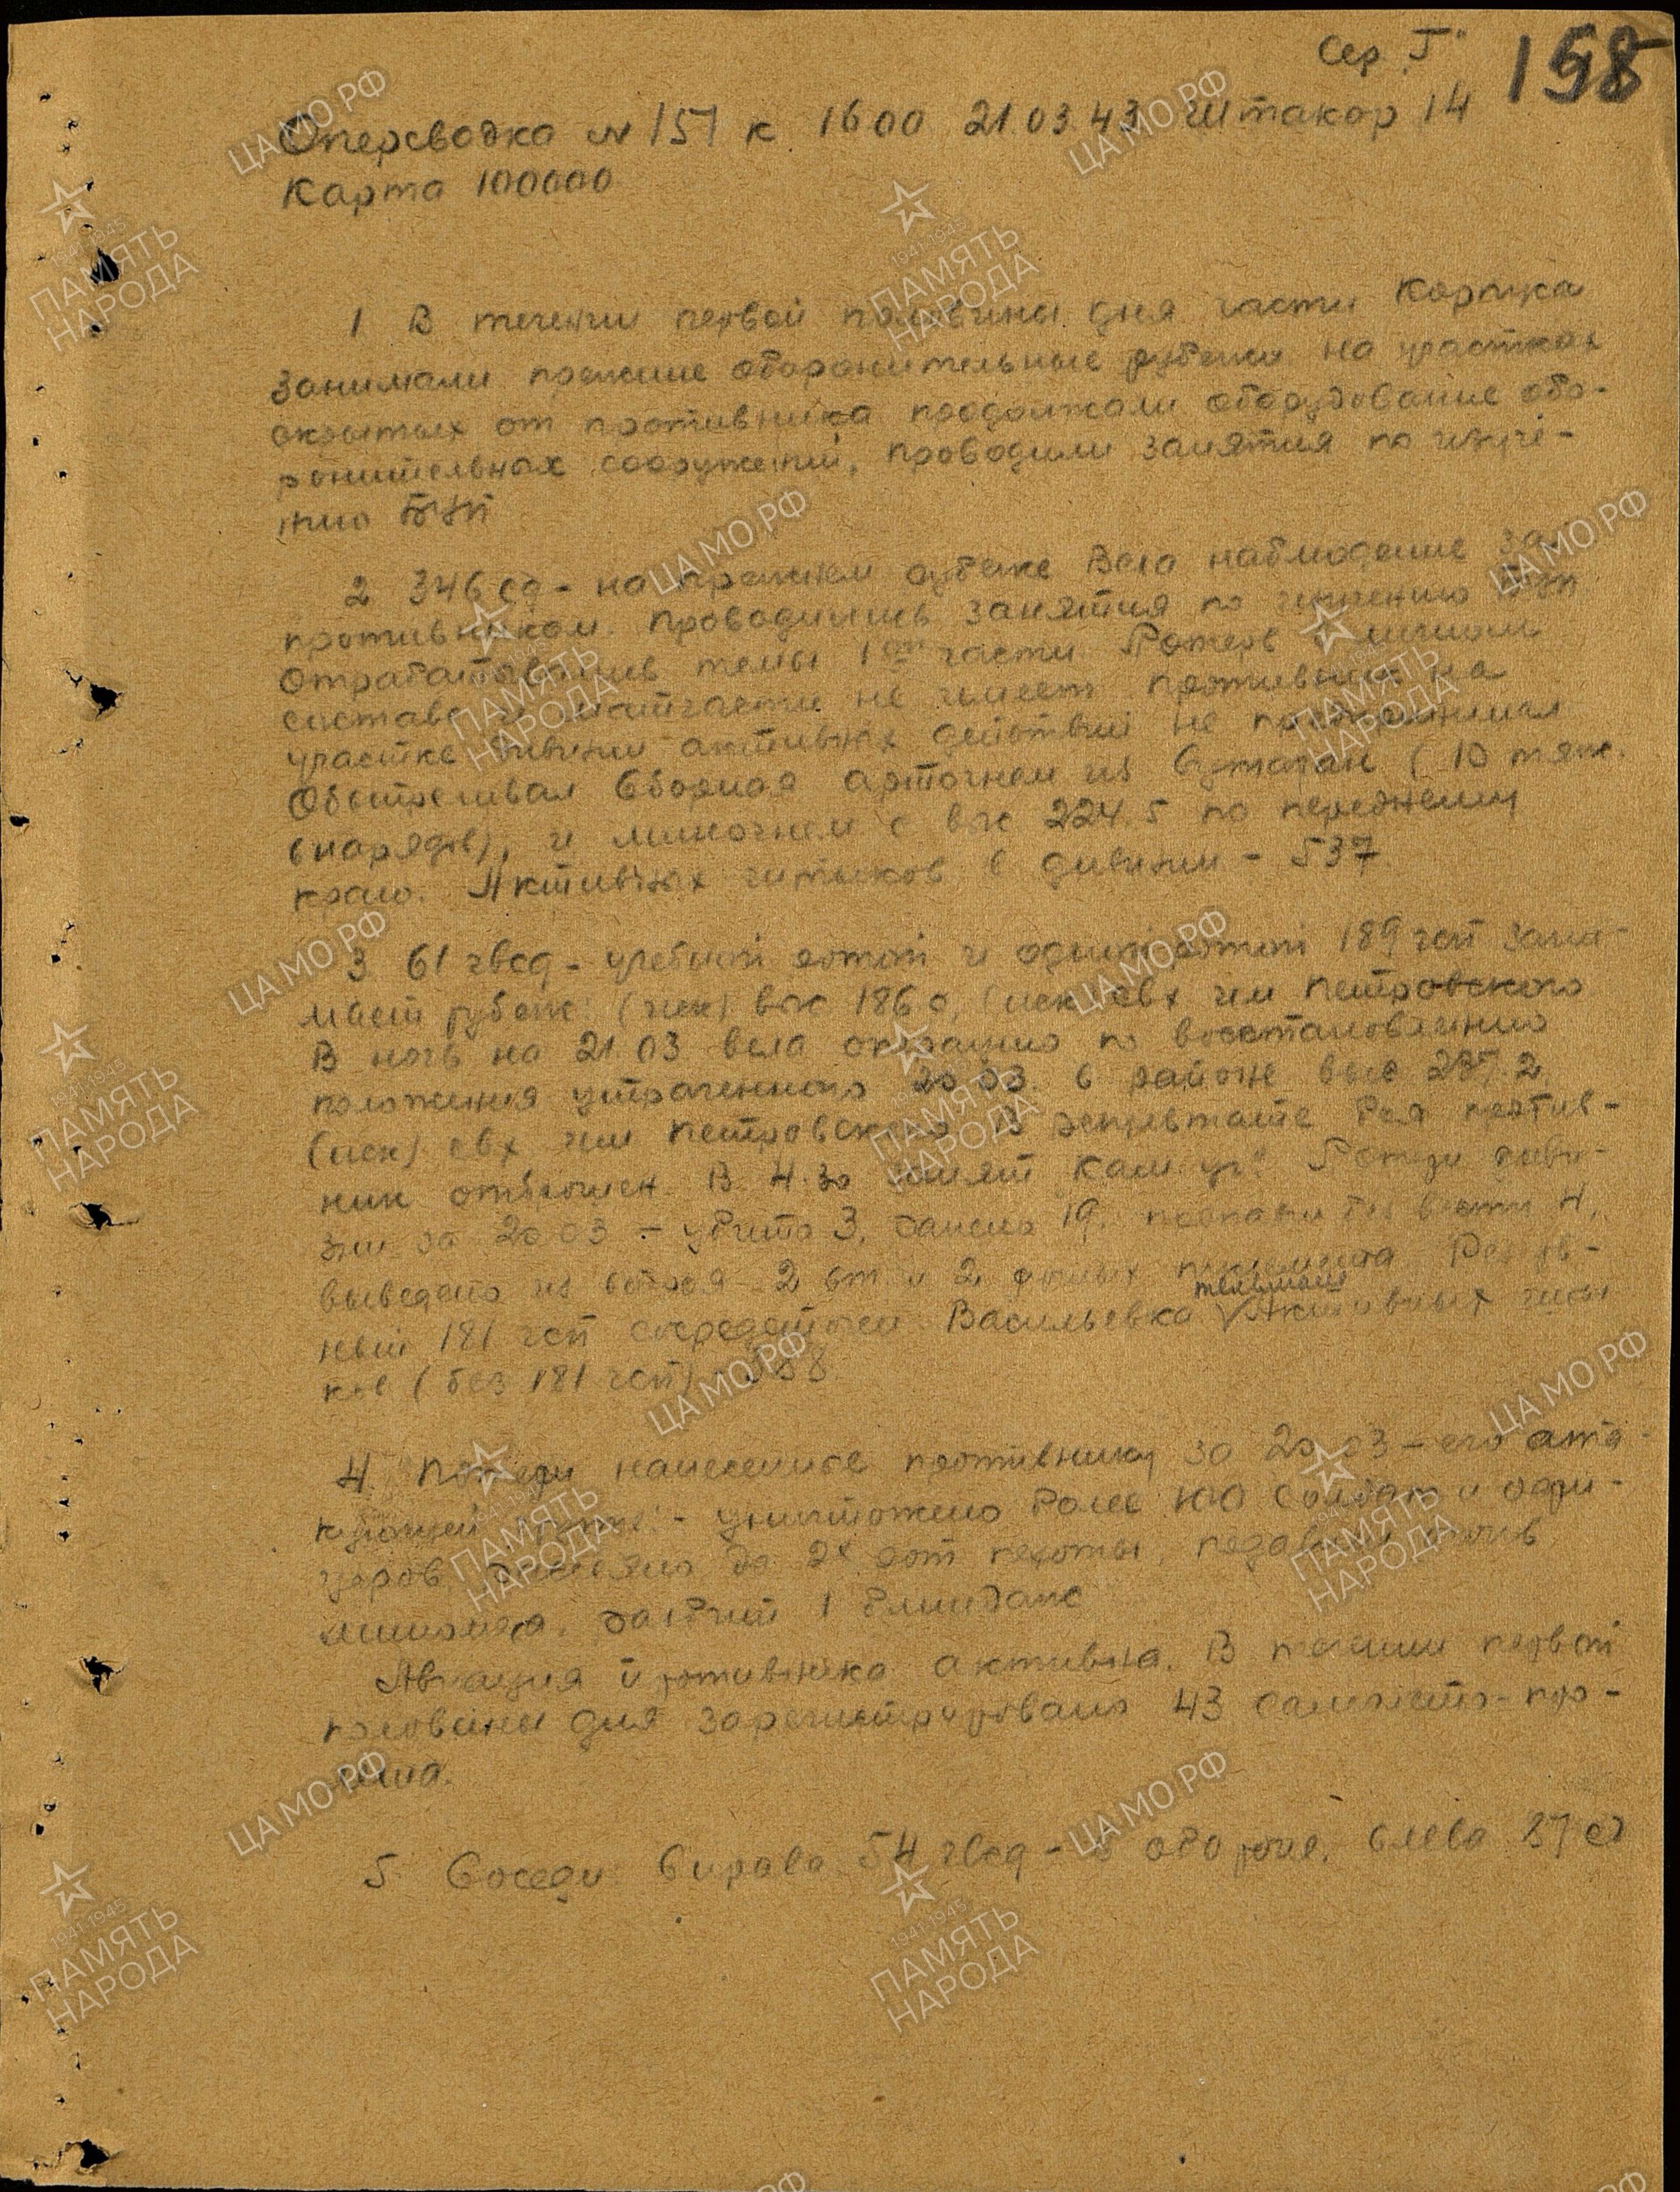 Сер. Г"
158
Оперсводка № 151 к 16 00 21.03.43 Штакор 14
Карта 100000
1 В течении первой половины дня части Корпуса
занимали прежние оборонительные рубежи на участках
скрытых от противника продолжали оборудование обо-
ронительных сооружений, проводили занятия по изуче-
нию БУП
2 346 сд - на прежнем рубеже вела наблюдение за
противником. Проводились занятия по изучению БУП
Отрабатывались темы 1ой части Потерь в личном
составе и матчасти не имеет противник на
участке дивизии активных действий не предпринимал
Обстреливал Сборная артогнем из (10 тяж.
снарядов), и миногнем с выс 224.5 по переднему
краю. Активных штыков в дивизии - 537
3 61 гвсд - учебной ротой и одной ротой 189 гсп зани-
мает рубеж: (иск) выс 186.0, (иск) свх им Петровского
В ночь на 21.03 вела операцию по восстановлению
положения утраченного 20.03. в районе выс
(иск) свх им Петровского В результате боя против-
ник отброшен. В 4.30 занят Потери диви-
зии за 20.03 - убито 3, ранено 19, пропали без вести 4,
выведено из строя - 2 ст. и 2 ручных пулемета
ный 181 гсп сосредоточен Васильевка Активных шты
ков (без 181 гсп) -
4. Потери нанесенные противнику за 20.03 - его ата-
кующей группы - уничтожено более 100 солдат и офи-
церов, рассеяно до 2х рот пехоты, подавлен огонь
миномета, разбит 1 блиндаж
Авиация противника активна. В течении первой
половины дня зарегистрировано 43 самолето-про-
лета.
5. Соседи: Справа 54 гвсд - в обороне, слева сд
ЦА МО РФ
1941-1945
ПАМЯТЬ
НАРОДА